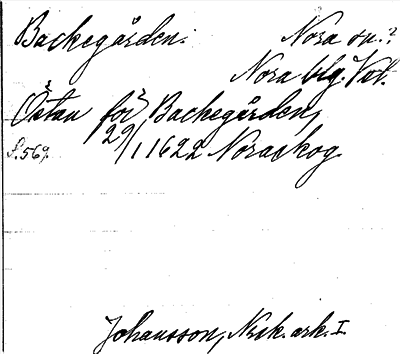 Backegården. Nora sn.?
Nora blg. Vstl.
Östan för Backegården,
s. 569. 29/1 1622 Noraskog
Johansson, Nsk. ark. I